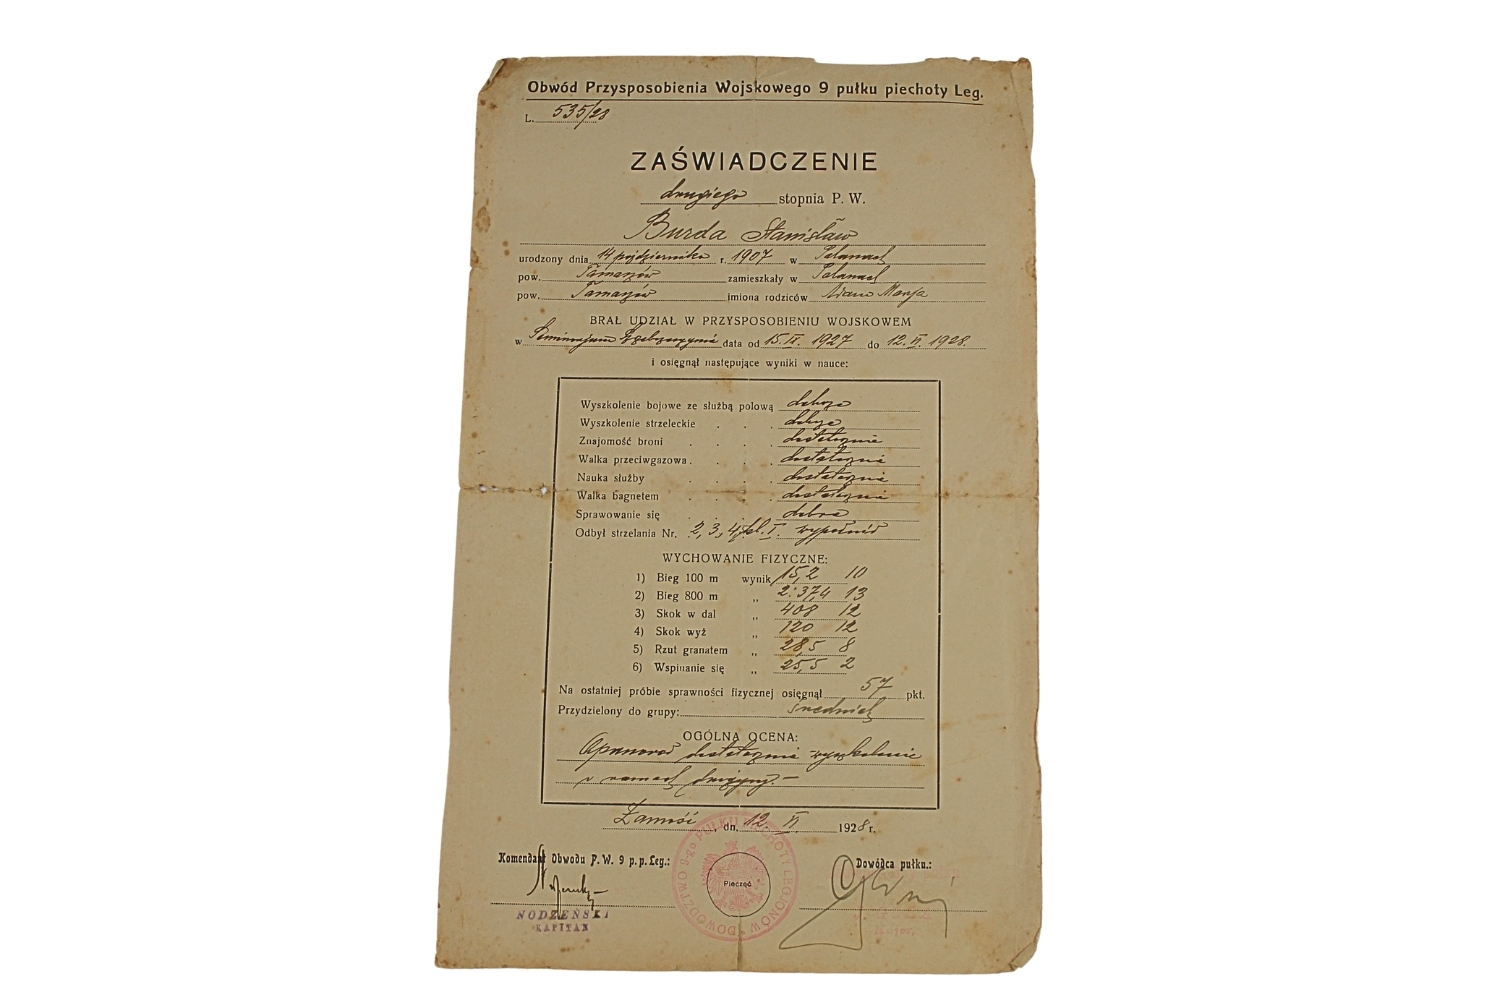 Obwód Przysposobienia Wojskowego 9 pułku piechoty Leg.
L. 535/28
ZAŚWIADCZENIE
drugiego stopnia P. W.
Burda Stanisław
urodzony dnia 14 października r. 1907 w
pow. zamieszkały w
pow. imiona rodziców Adam Marja
BRAŁ UDZIAŁ W PRZYSPOSOBIENIU WOJSKOWEM
w data od 15. IX. 1927 do 12. VI. 1928.
i osięgnął następujące wyniki w nauce:
Wyszkolenie bojowe ze służbą polową dobrze
Wyszkolenie strzeleckie . . . dobrze
Znajomość broni . . . dostatecznie
Walka przeciwgazowa . . . dostatecznie
Nauka służby . . . dostatecznie
Walka bagnetem . . . dostatecznie
Sprawowanie się . . . dobre
Odbył strzelania Nr. 2, 3, 4, kl. I. wypełnił
WYCHOWANIE FIZYCZNE:
1) Bieg 100 m wynik 15,2 10
2) Bieg 800 m „ 2:37,4 13
3) Skok w dal „ 408 12
4) Skok wyż „ 120 12
5) Rzut granatem „ 28,5 8
6) Wspinanie się „ 25,5 2
Na ostatniej próbie sprawności fizycznej osięgnął 57 pkt.
Przydzielony do grupy: średniej
OGÓLNA OCENA:
Opanował dostatecznie wyszkolenie
w ramach drużyny. —
Zamość, dn. 12. VI 1928 r.
Komendant Obwodu P. W. 9 p. p. Leg.: Dowódca pułku.:
DOWÓDZTWO 9-go PUŁKU PIECHOTY LEGIONÓW
Pieczęć
NODZEŃSKI
KAPITAN
Major.